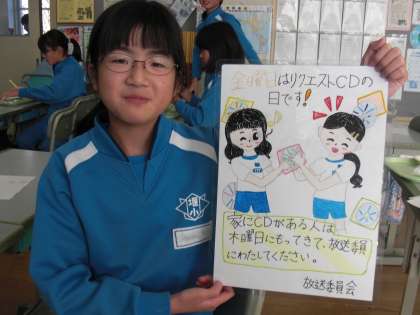 金曜日はリクエストCDの
日です!
家にCDがある人は
木曜日にもってきて、放送委員
にわたしてください。
放送委員会
堀小